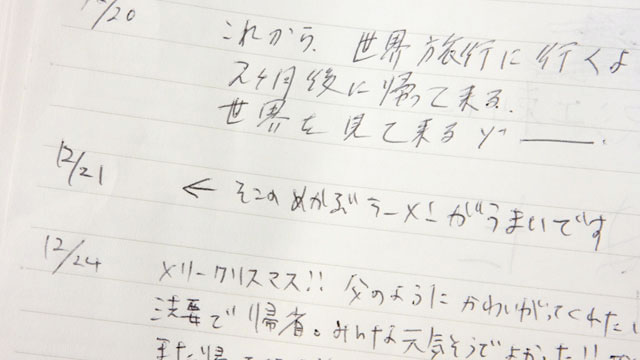 12/20
これから、世界旅行に行くよ
2ヶ月後に帰って来る。
世界を見て来るゾ――.
12/21
← そこのめかぶラーメンがうまいです
12/24
メリークリスマス!! 父のようにかわいがってくれた
法要で帰省。みんな元気そうでよかった!!
また帰